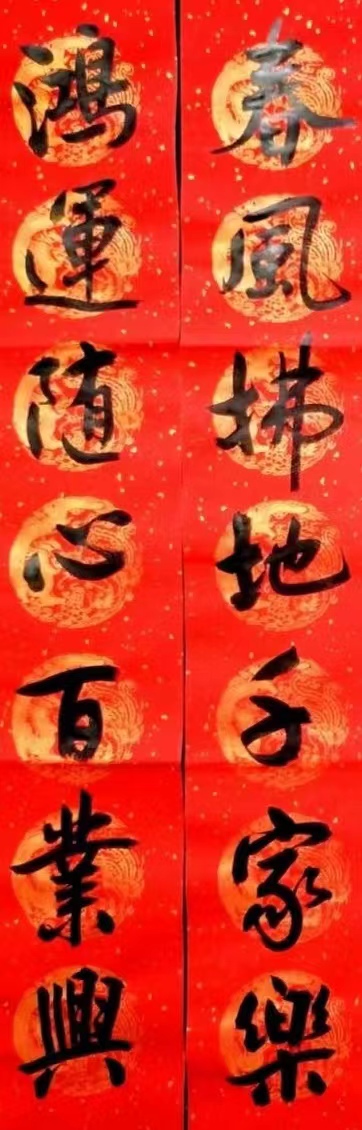 春風拂地千家樂
鴻運随心百業興